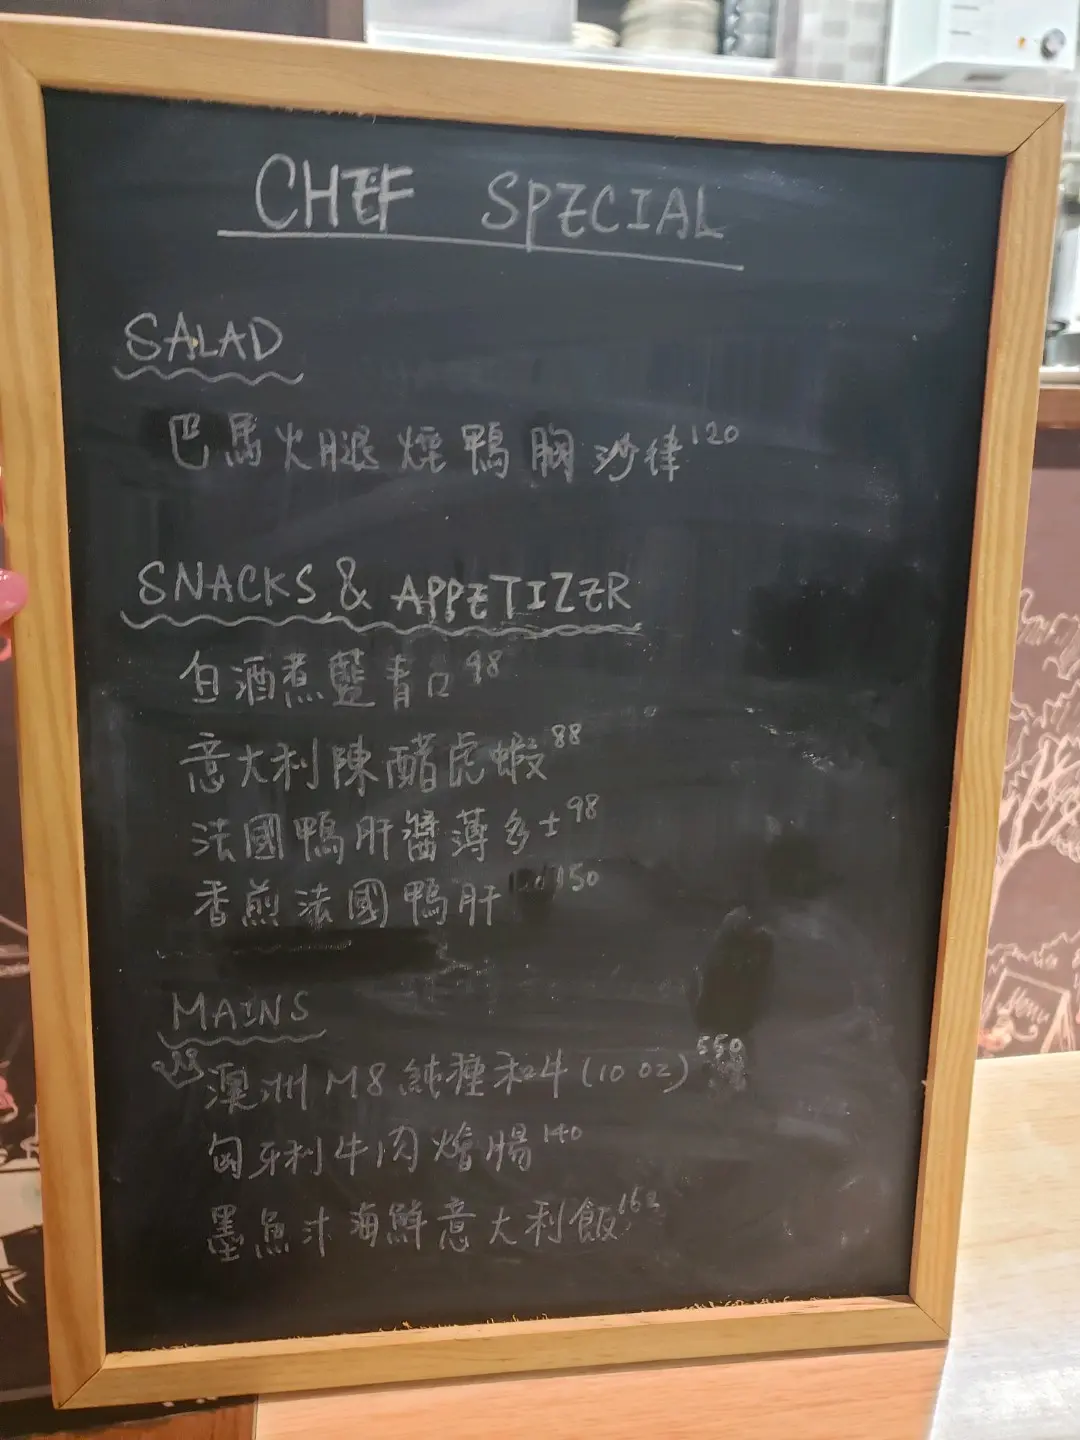 CHEF SPECIAL
SALAD
巴馬火腿煙鴨胸沙律 120
SNACKS & APPETIZER
白酒煮藍青口 98
意大利陳醋虎蝦 88
法國鴨肝醬薄多士 98
香煎法國鴨肝 150
MAINS
澳洲M8純種和牛(10 oz) 550
匈牙利牛肉燴腸 140
墨魚汁海鮮意大利飯 162
Menu